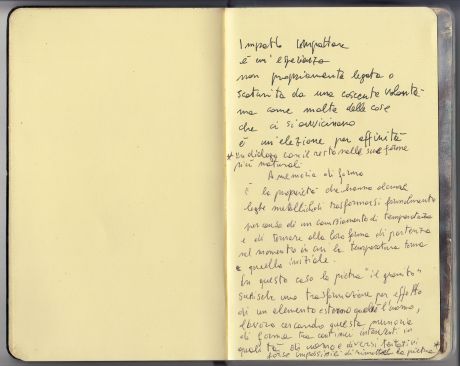 Impatto
è un'esperienza
non propriamente legata o
scaturita da una cosciente volontà
ma come molte delle cose
che ci si avvicinano
è un'elezione per affinità
* Un dialogo con il resto nelle sue forme
più naturali
A memoria di forma
È la proprietà che hanno alcune
leghe metalliche di trasformarsi formalmente
per causa di un cambiamento di temperatura
e di tornare alla loro forma di partenza
nel momento in cui la temperatura torna
a quella iniziale.
In questo caso la pietra "il granito"
subisce una trasformazione per effetto
di un elemento esterno qual è l'uomo,
lavoro cercando questa memoria
di forma tra continui interventi in
qualità di uomo e diversi tentativi
forse impossibili di rimettere la pietra *